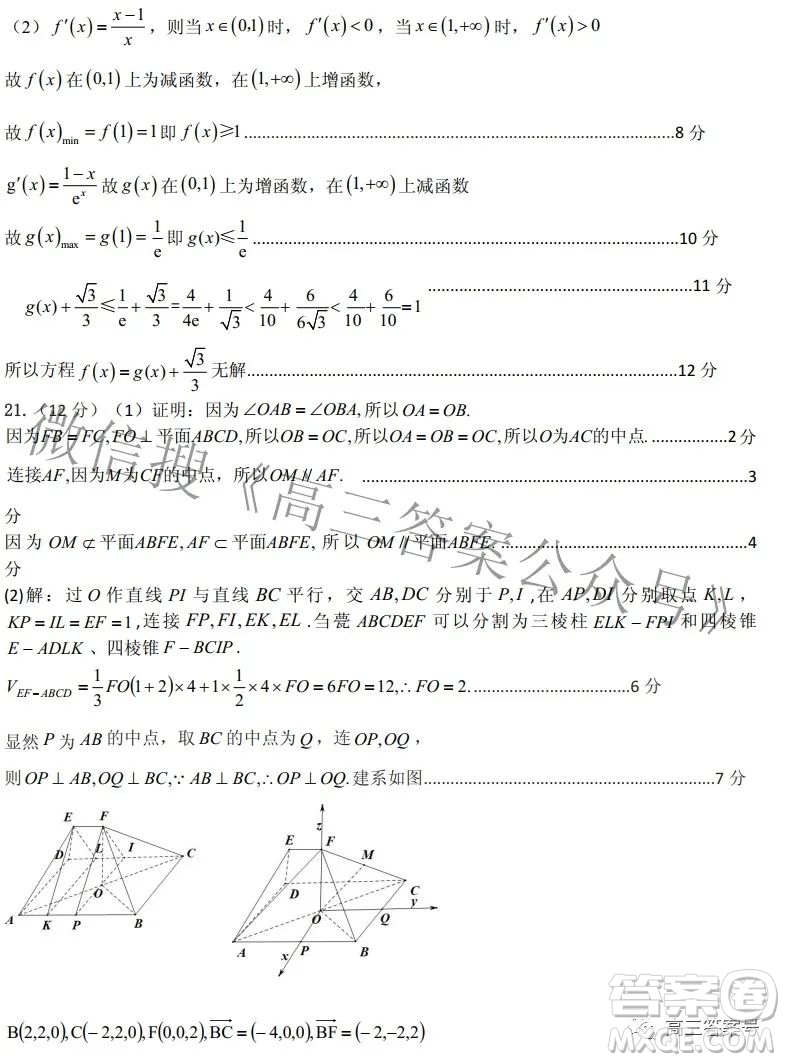 (2) f′(x)=\frac{x-1}{x}, 则当 x∈(0,1)时, f′(x)<0, 当 x∈(1,+∞)时, f′(x)>0
故 f(x)在(0,1)上为减函数, 在(1,+∞)上增函数,
故 f(x)_{min}=f(1)=1即 f(x)≥1.................8 分
g′(x)=\frac{1-x}{e^x}故g(x)在(0,1)上为增函数, 在(1,+∞)上减函数
故g(x)_{max}=g(1)=\frac{1}{e}即g(x)≤\frac{1}{e}.................10 分
g(x)+\frac{√3}{3}≤\frac{1}{e}+\frac{√3}{3}=\frac{4}{4e}+\frac{1}{√3}<\frac{4}{10}+\frac{6}{6√3}<\frac{4}{10}+\frac{6}{10}=1 .................11 分
所以方程 f(x)=g(x)+\frac{√3}{3}无解.................12 分
21. (12 分) (1)证明: 因为∠OAB=∠OBA,所以OA=OB.
因为FB=FC,FO⊥平面ABCD,所以OB=OC,所以OA=OB=OC,所以O为AC的中点.................2 分
连接AF,因为M为CF的中点, 所以OM∥AF. .................3
分
因为 OM⊄平面ABFE, AF⊂平面ABFE, 所以 OM∥平面ABFE. .................4
分
(2)解: 过 O 作直线 PI 与直线 BC 平行, 交 AB,DC 分别于P,I,在 AP,DI 分别取点K,L,
KP=IL=EF=1,连接 FP,FI,EK,EL.刍甍 ABCDEF 可以分割为三棱柱ELK-FPI和四棱锥
E-ADLK、四棱锥F-BCIP.
V_{EF-ABCD}=\frac{1}{3}FO(1+2)×4+1×\frac{1}{2}×4×FO=6FO=12,∴FO=2.................6 分
显然 P 为 AB 的中点, 取 BC 的中点为Q, 连 OP,OQ,
则OP⊥AB,OQ⊥BC,∵AB⊥BC,∴OP⊥OQ.建系如图.................7 分
E F
D L I C
O
A K P B
z
E F
M
D C
O y
Q
A P B
x
B(2,2,0),C(-2,2,0),F(0,0,2),\overrightarrow{BC}=(-4,0,0),\overrightarrow{BF}=(-2,-2,2)
微信搜《高三答案公众号》
答案卷
高三答案号
MXQE.COM